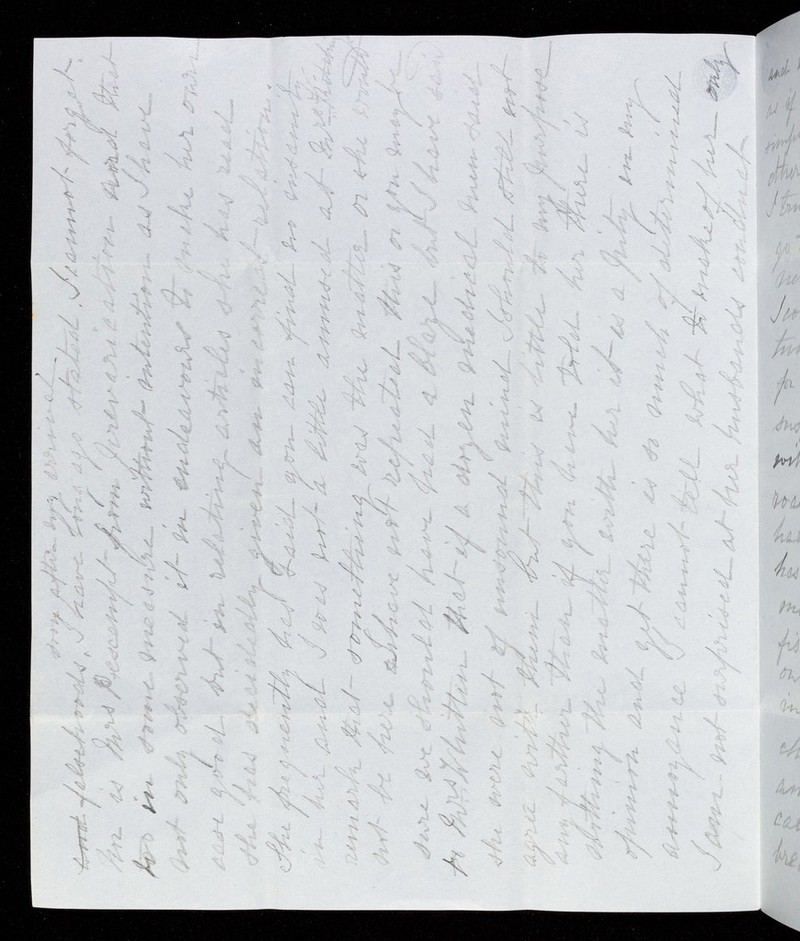 day after my arrival
falsehoods, I have long ago stated. I cannot forget.
nor is Mrs P exempt from prevarication and that
too in some measure without intention as I have
not only observed it in endeavours to make her own
case good but in relating articles she has read
she has decidedly given an incorrect relation.
She frequently has said you can find no insanity
in her and I was not a little amused at Mrs
remark that something was the matter or she would
not be here I have not repeated this or you may be
sure we should have had a blaze but I have said
to Mrs Whitten that if a dozen medical men said
she were not of unsound mind I should still not
agree with them but this is little to my purpose
any farther than if you have told her there is
nothing the matter with her it is a pity in my
opinion and yet there is so much of determined
annoyance I cannot tell what to make of her only
I am not surprised at her husbands conduct